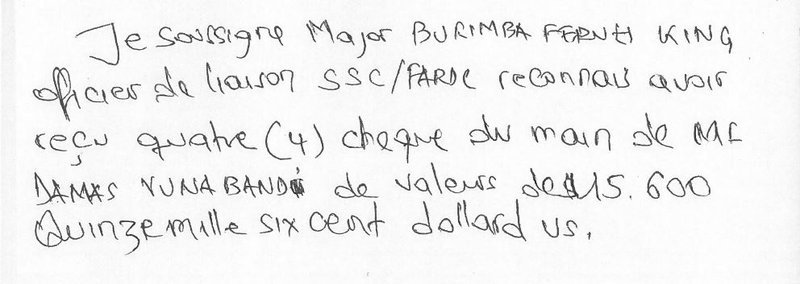 Je soussigne Major BURIMBA KING
officier de liaison SSC/FARDC reconnais avoir
reçu quatre (4) cheque du main de
DAMAS de valeurs de 15.600
Quinze mille six cent dollard us.